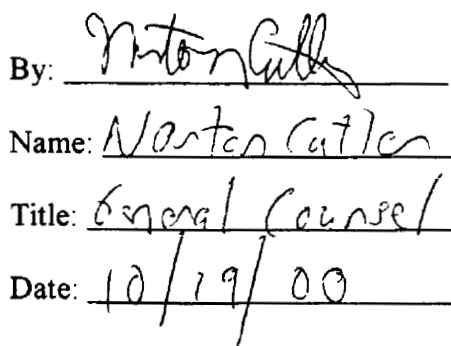 By: Norton Cutler
Name: Norton Cutler
Title: General Counsel
Date: 10/19/00